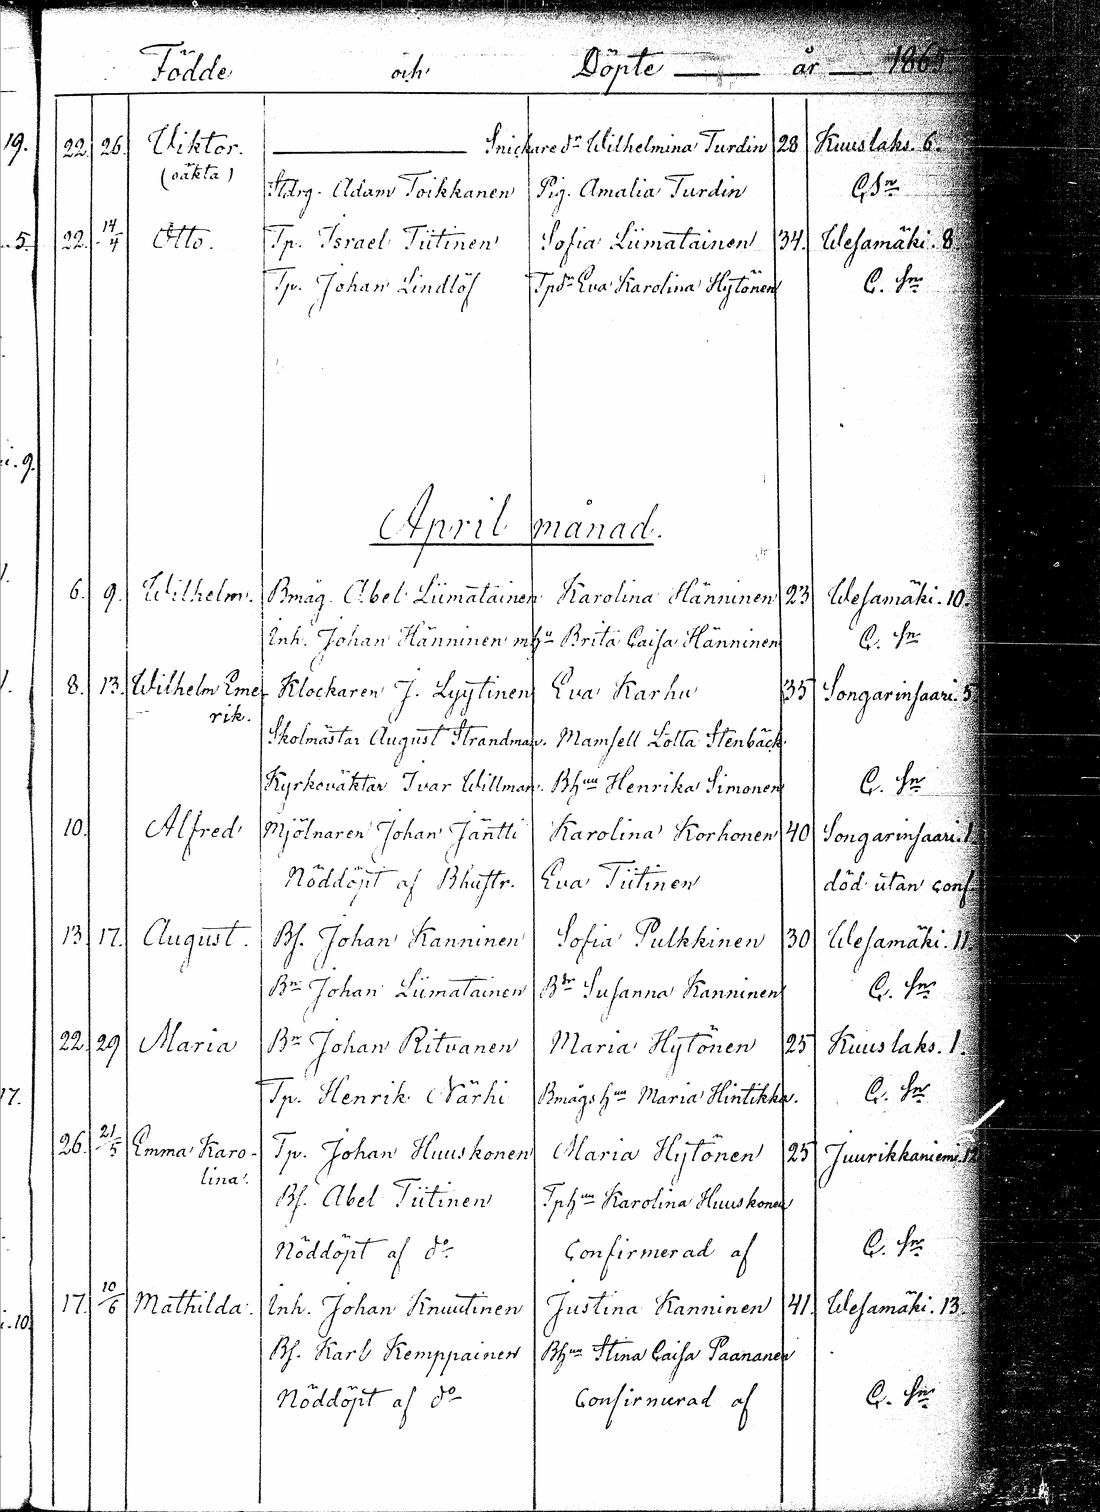 Födde och Döpte år 1865.
19. 22. 26. Viktor. Snickare dr Wilhelmina Turdin 28 Kuuslaks. 6.
(oäkta)
Adam Toikkanen Pig. Amalia Turdin C Sn
5. 22. 14/4 Otto. Tp. Israel Tiitinen Sofia Liimatainen 34. Wesamäki. 8
Tp. Johan Lindlöf Tpdr Eva Karolina Hytönen C. Sn
i. 9.
April månad.
6. 9. Wilhelm. Bmåg. Abel Liimatainen Karolina Hänninen 23 Wesamäki. 10.
Inh. Johan Hänninen m hu Brita Caisa Hänninen C. Sn
8. 13. Wilhelm Eme- Klockaren J. Lyytinen Eva Karhu 35 Songarinsaari. 5
rik.
Skolmästar August Strandman. Mamsell Lotta Stenbäck
Kyrkoväktar Ivar Willman. Bhun Henrika Simonen C. Sn
10. Alfred Mjölnaren Johan Jäntti Karolina Korhonen 40 Songarinsaari. 1.
Nöddöpt af Bhustr. Eva Tiitinen död utan conf.
13. 17. August. Bs. Johan Kanninen Sofia Pulkkinen 30 Wesamäki. 11.
Bn Johan Liimatainen Bdr Susanna Kanninen C. Sn
22. 29 Maria Bn Johan Ritvanen Maria Hytönen 25 Kuuslaks. 1.
17. Tp. Henrik Närhi Bmågshun Maria Hintikka. C. Sn
26. 21/5 Emma Karo- Tp. Johan Huuskonen Maria Hytönen 25 Juurikkaniemi. 12
lina.
Bs. Abel Tiitinen Tphun Karolina Huuskonen
Nöddöpt af do Confirmerad af C. Sn
i. 10. 17. 10/6 Mathilda. Inh. Johan Knuutinen Justina Kanninen 41. Wesamäki. 13.
Bs. Karl Kemppainen Bhun Stina Caisa Paananen
Nöddöpt af do Confirmerad af C. Sn